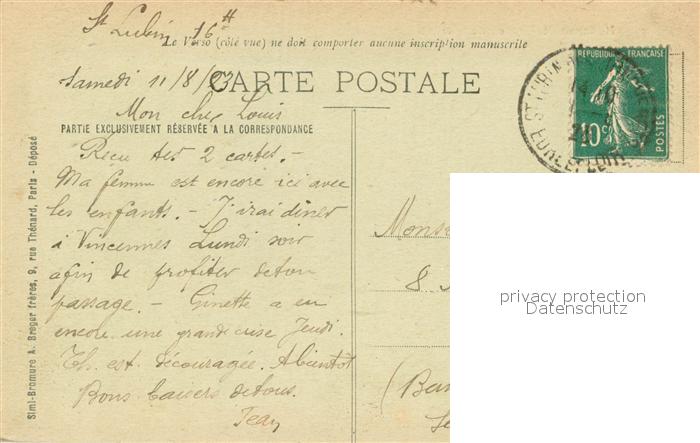 St Lubin 16 H
Le Verso (côté vue) ne doit comporter aucune inscription manuscrite
Samedi 11/8/23
CARTE POSTALE
Mon cher Louis
PARTIE EXCLUSIVEMENT RÉSERVÉE A LA CORRESPONDANCE
Recu tes 2 cartes. -
Ma femme est encore ici avec
les enfants. - J'irai diner
à Vincennes Lundi soir
afin de profiter de ton
passage. - Ginette a eu
encore une grande crise Jeudi.
Th. est découragée. A bientot
Bons baisers de tous.
Jean
Simi-Bromure A. Breger frères, 9, rue Thénard, Paris - Déposé
REPUBLIQUE FRANÇAISE
10 c
POSTES
ST LUBIN
EURE ET LOIR
Mons
8
(Ban
privacy protection
Datenschutz